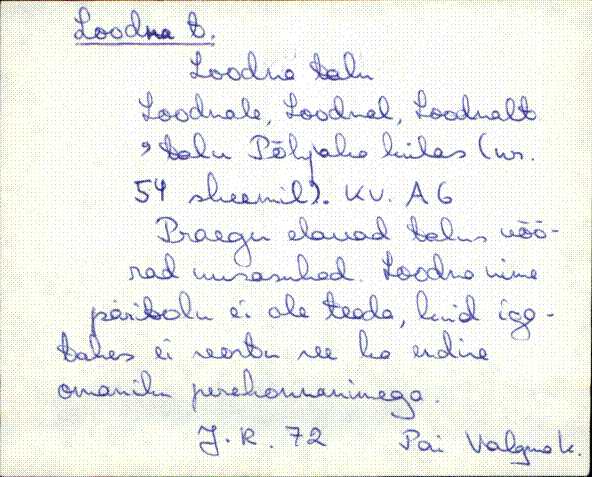 Loodna t.
Loodna talu
Loodnale, Loodnal, Loodnalt
, talu Põhjaka külas (nr.
54 skeemil). KV. A6
Praegu elavad talus võõ-
rad uusasukad. Loodna nime
päritolu ei ole teada, kuid iga-
tahes ei seostu see ka endise
omaniku perekonnanimega.
J. R. 72 Pai Valgma k.